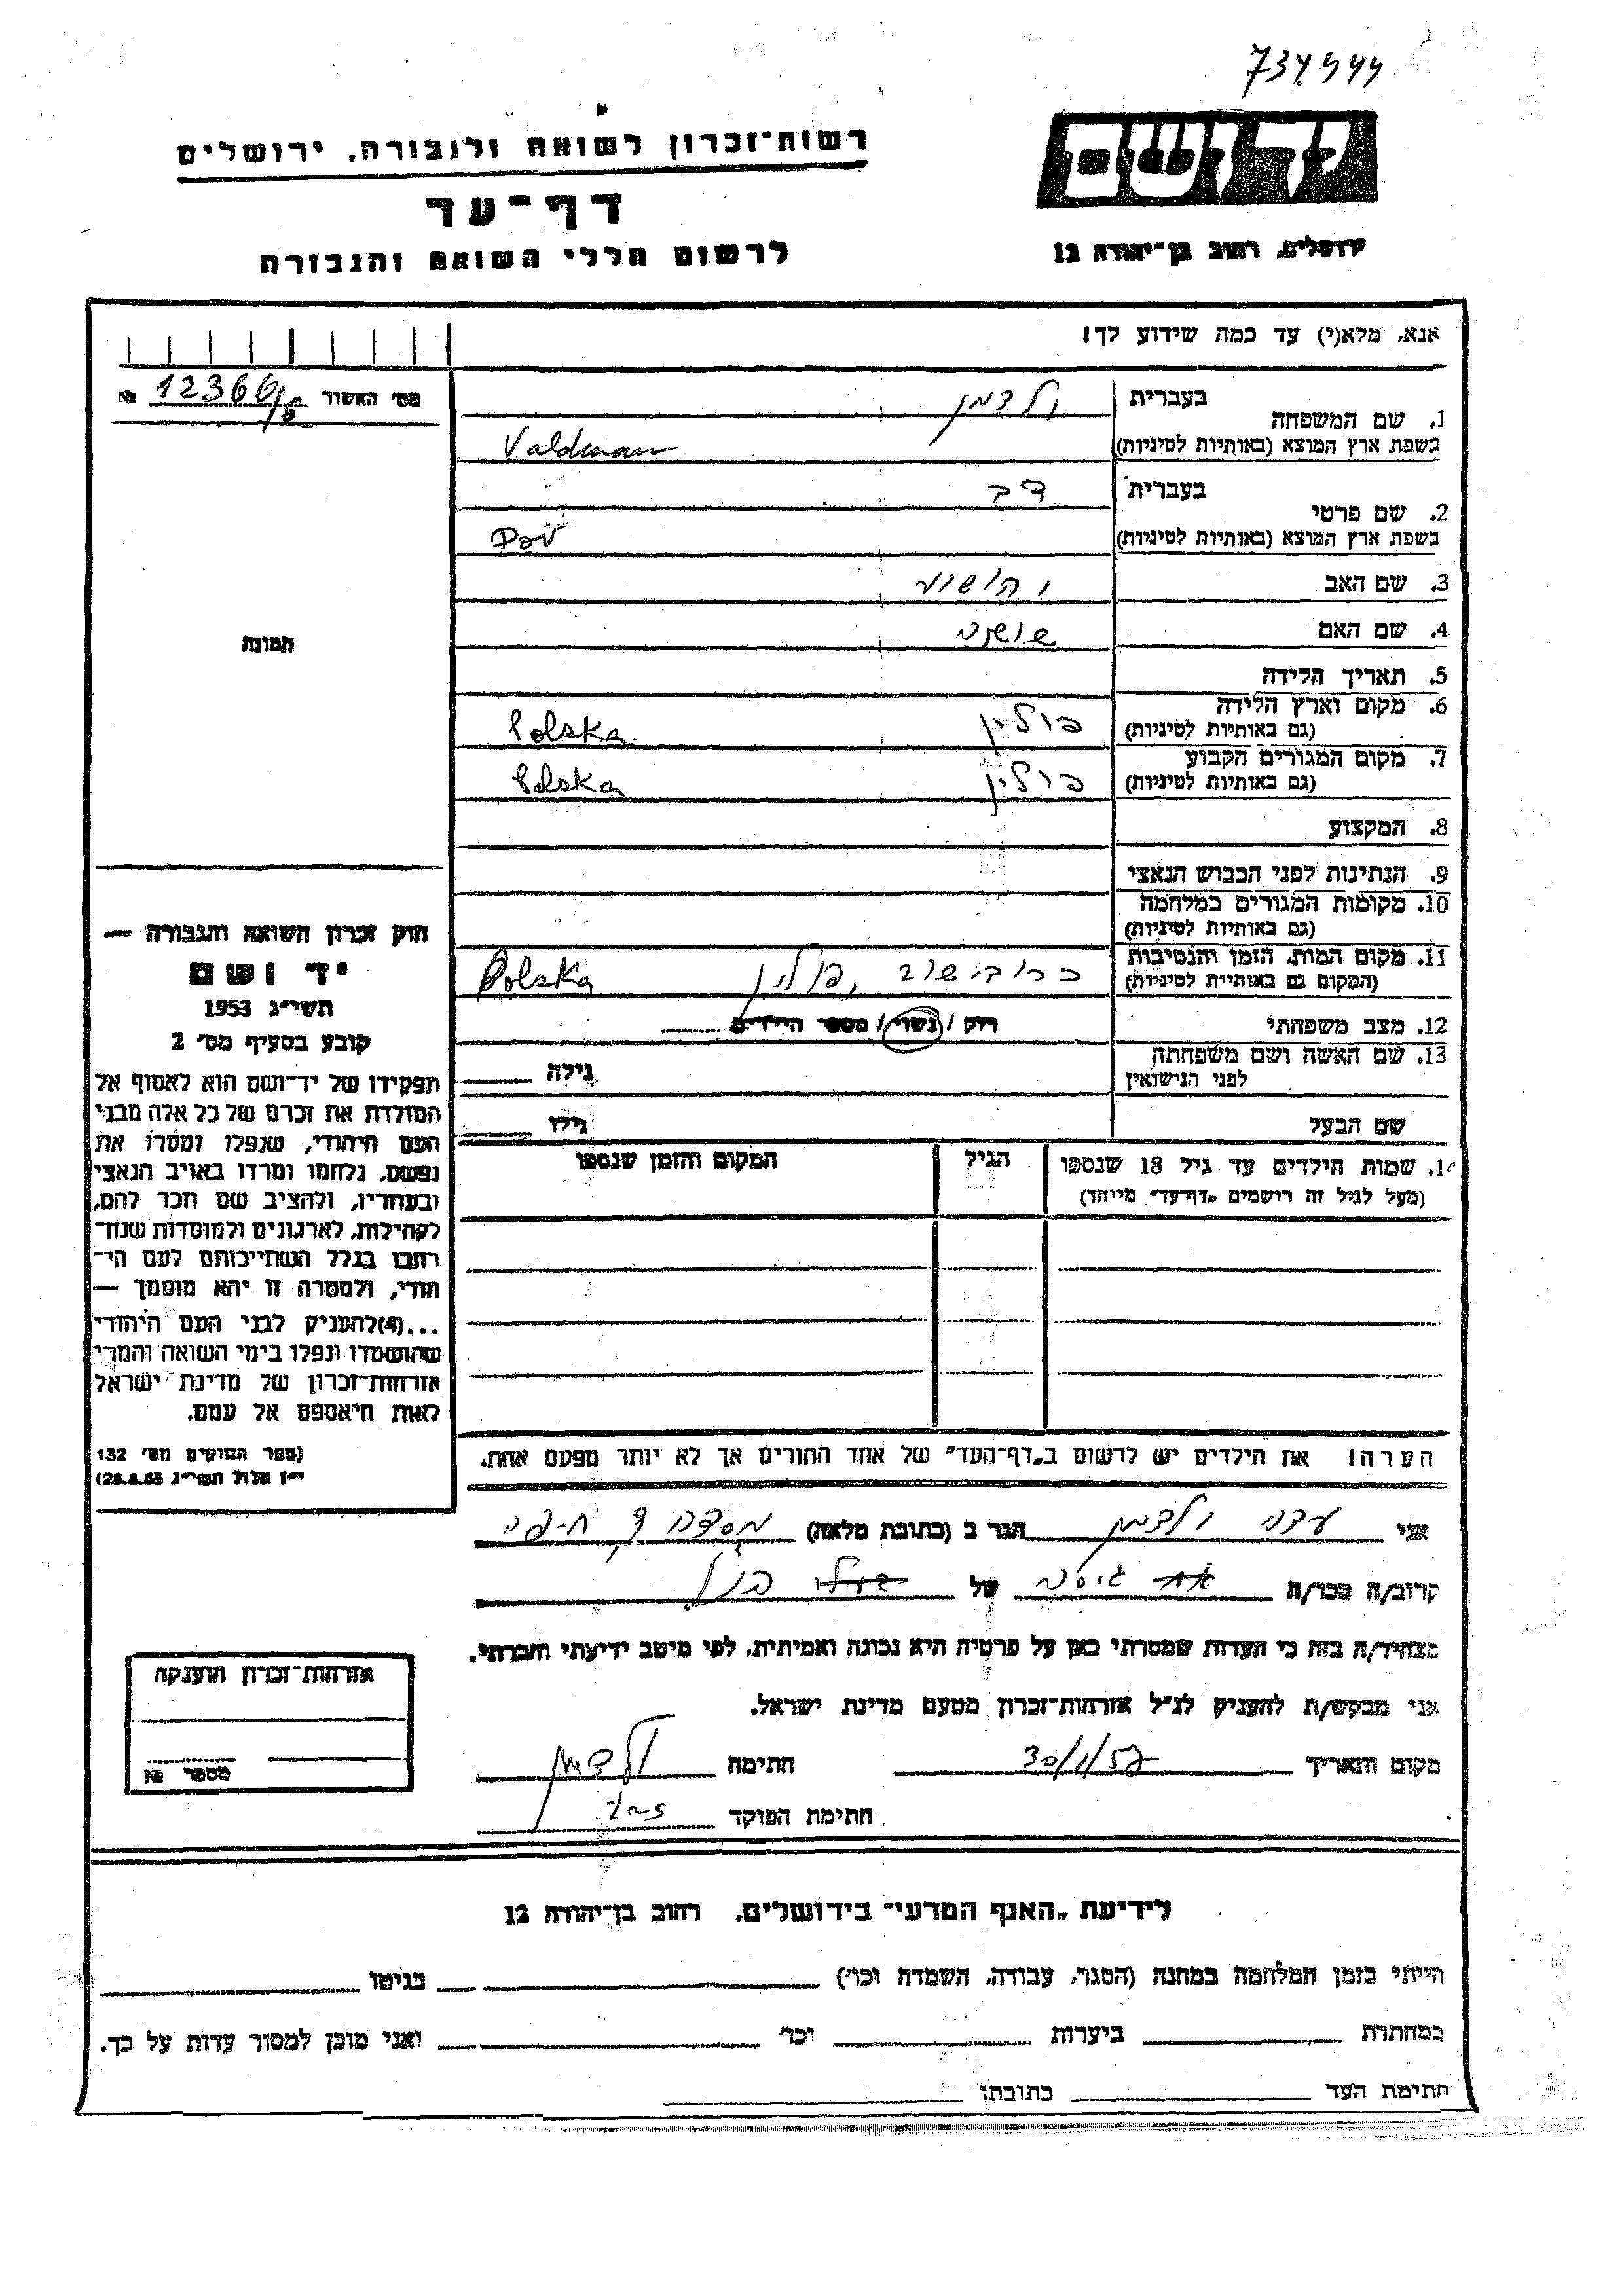 734944
רשות־זכרון לשואה ולגבורה, ירושלים
יד ושם
דף־עד
ירושלים, רחוב בן־יהודה 12
לרשום חללי השואה והגבורה
אנא, מלא(י) עד כמה שידוע לך!
מס׳ האשור 12366/ №
1. שם המשפחה
בעברית ולדמן
בשפת ארץ המוצא (באותיות לטיניות) Valdman
2. שם פרטי
בעברית דב
בשפת ארץ המוצא (באותיות לטיניות) Dov
3. שם האב יהושוע
4. שם האם שושנה
תמונה
5. תאריך הלידה
6. מקום וארץ הלידה
(גם באותיות לטיניות) פולין Polska
7. מקום המגורים הקבוע
(גם באותיות לטיניות) פולין Polska
8. המקצוע
9. הנתינות לפני הכבוש הנאצי
10. מקומות המגורים במלחמה
(גם באותיות לטיניות)
11. מקום המות, הזמן והנסיבות
(המקום גם באותיות לטיניות) פולין, Polska
12. מצב משפחתי רווק / נשוי / מספר הילדים
13. שם האשה ושם משפחתה
לפני הנישואין גילה
שם הבעל גילו
14. שמות הילדים עד גיל 18 שנספו הגיל המקום והזמן שנספו
(מעל לגיל זה רושמים „דף־עד״ מיוחד)
הערה! את הילדים יש לרשום ב„דף־העד״ של אחד ההורים אך לא יותר מפעם אחת.
חוק זכרון השואה והגבורה —
יד ושם
תשי״ג 1953
קובע בסעיף מס׳ 2
תפקידו של יד־ושם הוא לאסוף אל
המולדת את זכרם של כל אלה מבני
העם היהודי, שנפלו ומסרו את
נפשם, נלחמו ומרדו באויב הנאצי
ובעוזריו, ולהציב שם וזכר להם,
לקהילות, לארגונים ולמוסדות שנח־
רבו בגלל השתייכותם לעם הי־
הודי, ולמטרה זו יהא מוסמך —
...(4) להעניק לבני העם היהודי
שהושמדו ונפלו בימי השואה והמרי
אזרחות־זכרון של מדינת ישראל
לאות היאספם אל עמם.
(ספר החוקים מס׳ 132
י״ז אלול תשי״ג 28.8.53)
אני עדה ולדמן הגר ב (כתובת מלאה) מסדה חיפה
קרוב/ה מכר/ה גיסה של
מצהיר/ה בזה כי העדות שמסרתי כאן על פרטיה היא נכונה ואמיתית, לפי מיטב ידיעתי והכרתי.
אני מבקש/ת להעניק לנ״ל אזרחות־זכרון מטעם מדינת ישראל.
מקום ותאריך 30/1/57 חתימה ולדמן
חתימת הפוקד
אזרחות־זכרון הוענקה
מספר №
לידיעת „האגף המדעי״ בירושלים, רחוב בן־יהודה 12
הייתי בזמן המלחמה במחנה (הסגר, עבודה, השמדה וכו׳) בגיטו
במחתרת ביערות וכו׳ ואני מוכן למסור עדות על כך.
חתימת העד כתובתו